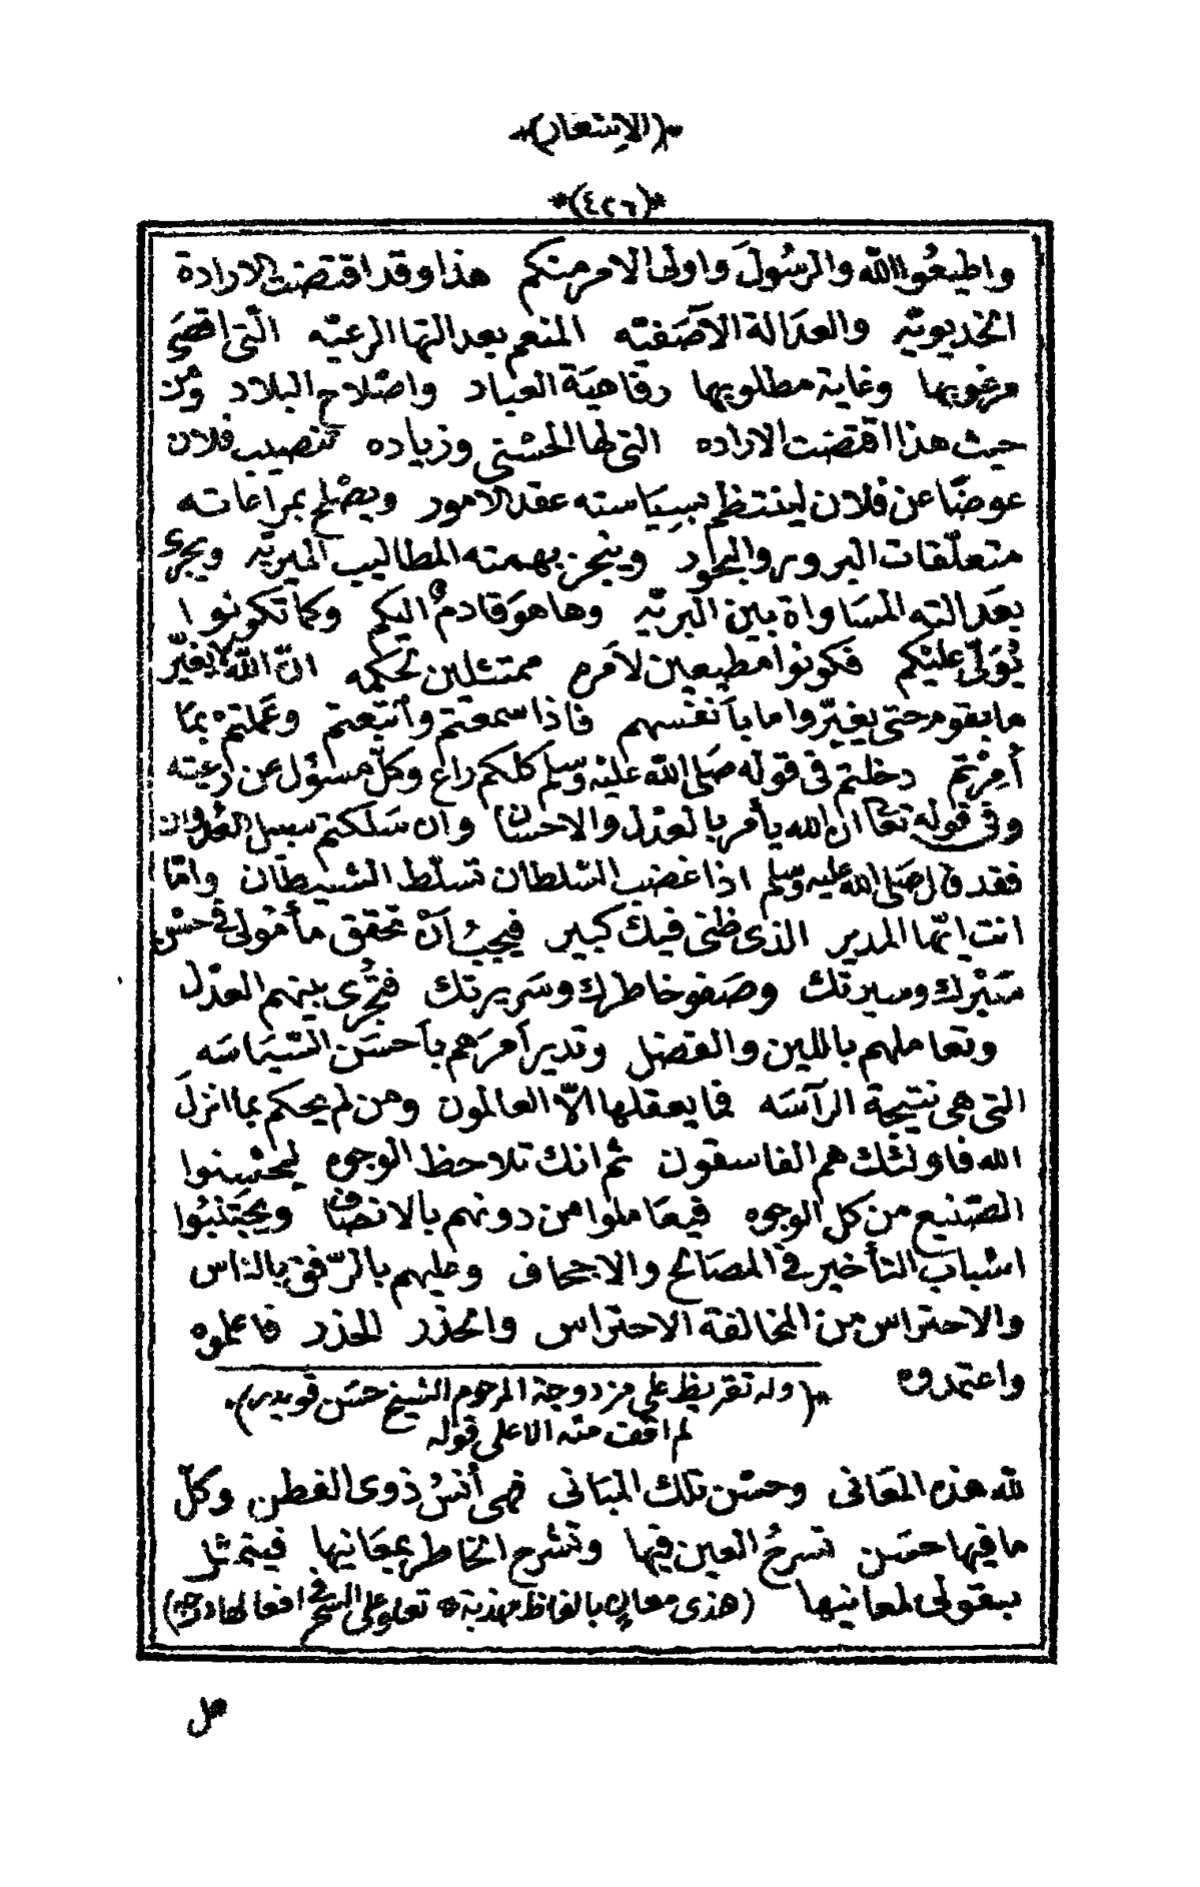 *(الاشعار)*
*(٤٢٦)*
واطيعُوا الله والرسُولَ واولى الامر منكم هذا وقد اقتضت الارادة
الخديويّه والعدَالة الآصَفيّه المنعم بعدالتها الرعيّه التى اقصَى
مرغوبها وغاية مطلوبها رفاهيَة العباد واصْلاح البلاد ومن
حيث هذا اقتضت الاراده التى لها الحسْنى وزياده تنصيب فلان
عوضًا عن فلان لينتظم بسيَاسته عقد الامور ويصْلح بمراعاته
متعلّقات البرور والبحور وينجز بهمته المطاليب الميريّه ويجرى
بعَدالته المسَاواة بين البريّه وها هوَ قادمٌ اليكم وكما تكونوا
يُوَلّى عليْكم فكونوا مطيعين لأمره ممتثلين لحكمه انّ الله لا يغيّر
ما بقوم حتى يغيّروا ما بأنفسهم فاذا سمعتم وأتبعتم وعملتم بمَا
أمِرْتم دخلتم فى قوله صَلى الله عليْه وسلم كلكم راع وكلّ مسؤل عن رعيته
وفى قوله تعَالى ان الله يأمر بالعدْل والاحسان وان سَلكتم سبيل العدوان
فقد قال صَلى الله عليه وسَلم اذا غضب السّلطان تسلّط الشيطان وامّا
انت ايّها المدير الذى ظنى فيك كبير فيجبُ أنْ تحقق مأمُولى فى حسْن
سَيْرك وسيرتك وصَفو خاطرك وسَريرتك فتجُرى بينهم العدْل
وتعاملهم باللين والفضل وتدير أمرَهم بأحسَن السّيَاسَه
التى هى نتيجة الرآسَه فما يعقلها الاّ العالمون ومن لم يحكم بما انزلَ
الله فاولئك هم الفاسقون ثم انك تلاحظ الوجوه ليحسنوا
الصّنيع من كل الوجوه فيعَاملوا من دونهم بالانصَاف ويجتنبُوا
اسْباب التأخير فى المصَالح والاجحاف وعليهم بالرّفق بالناس
والاحتراس من المخالفة الاحتراس والحذر الحذر فاعلموه
واعتمدوه
*(وله تقريظ على مزدوجة المرحوم الشيخ حسَن قويدر)*
لم اقف منه الا على قوله
لله هذه المعَانى وحسْن تلك المبَانى فهى أنسُ ذوى الفطن وكلّ
ما فيها حسَن تسرحُ العين فيها وتشرح الخاطر بمعَانيها فيتمثل
بيقولى لمعانيها (هذى معالٍ بالفاظ مهذبة * تعلو على السحر فى افعالها درجه)